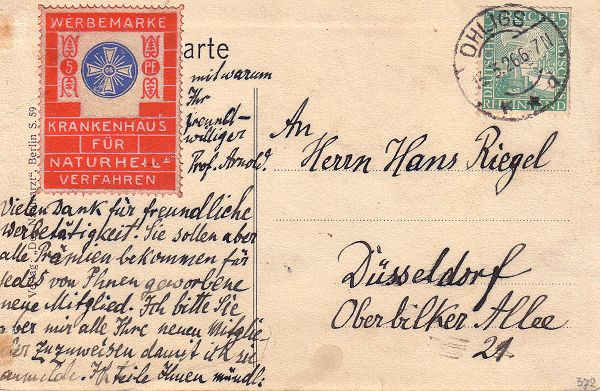 WERBEMARKE
5 PF
KRANKENHAUS
FÜR
NATURHEIL-
VERFAHREN
arte
mit warum
Ihr
freundt-
williger
Prof. Arnold.
Vielen Dank für freundliche
Werbetätigkeit. Sie sollen aber
alle Prämien bekommen für
jedes von Ihnen geworbene
neue Mitglied. Ich bitte Sie
aber mir alle Ihre neuen Mitglie-
der zuzuweisen damit ich sie
anmelde. Ich teile Ihnen mündl:
Berlin S. 59
OHLIGS
26.6-7N
DEUTSCHES REICH
5
RHEINLAND
An
Herrn Hans Riegel
Düsseldorf
Oberbilker Allee
21
372